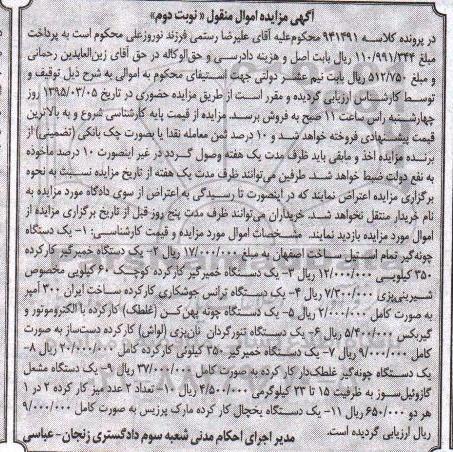 آگهی مزایده اموال منقول « نوبت دوم»
در پرونده کلاسه ۹۴۱۴۹۱ محکوم‌علیه آقای علیرضا رستمی فرزند نوروزعلی محکوم است به پرداخت
مبلغ ۱۱۰/۹۹۱/۳۴۴ ریال بابت اصل و هزینه دادرسی و حق‌الوکاله در حق آقای زین‌العابدین رحمانی
و مبلغ ۵۱۲/۷۵۰ ریال بابت نیم عشر دولتی جهت استیفای محکوم به اموالی به شرح ذیل توقیف و
توسط کارشناس ارزیابی گردیده و مقرر است از طریق مزایده حضوری در تاریخ ۱۳۹۵/۰۳/۰۵ روز
چهارشنبه راس ساعت ۱۱ صبح به فروش برسد. مزایده از قیمت پایه کارشناسی شروع و به بالاترین
قیمت پیشنهادی فروخته خواهد شد و ۱۰ درصد ثمن معامله نقدا یا بصورت چک بانکی (تضمینی) از
برنده مزایده اخذ و مابقی باید ظرف مدت یک هفته وصول گردد در غیر اینصورت ۱۰ درصد ماخوذه
به نفع دولت ضبط خواهد شد. طرفین می‌توانند ظرف مدت یک هفته از تاریخ مزایده نسبت به نحوه
برگزاری مزایده اعتراض نمایند که در اینصورت تا رسیدگی به اعتراض از سوی دادگاه مورد مزایده به
نام خریدار منتقل نخواهد شد. خریداران می‌توانند ظرف مدت پنج روز قبل از تاریخ برگزاری مزایده از
اموال مورد مزایده بازدید نمایند. مشخصات اموال مورد مزایده و قیمت کارشناسی: ۱- یک دستگاه
چونه‌گیر تمام استیل ساخت اصفهان به مبلغ ۱۷/۰۰۰/۰۰۰ ریال ۲- یک دستگاه خمیرگیر کارکرده
۳۵۰ کیلویی ۱۲/۰۰۰/۰۰۰ ریال ۳- یک دستگاه خمیر گیر کارکرده کوچک ۶۰ کیلویی مخصوص
شیرینی‌پزی ۷/۳۰۰/۰۰۰ ریال ۴- یک دستگاه ترانس جوشکاری کارکرده ساخت ایران ۳۰۰ آمپر
به صورت کامل ۲/۰۰۰/۰۰۰ ریال ۵- یک دستگاه چونه پهن‌کن (غلطک) کارکرده با الکتروموتور و
گیربکس ۵/۴۰۰/۰۰۰ ریال ۶- یک دستگاه تنورگردان نان‌پزی (لواش) کارکرده دست‌ساز به صورت
کامل ۹/۰۰۰/۰۰۰ ریال ۷- یک دستگاه خمیر گیر ۳۵۰ کیلوئی کارکرده کامل ۲۰/۰۰۰/۰۰۰ ریال ۸-
یک دستگاه چونه‌گیر غلطک‌دار کارکرده به صورت کامل ۳۷/۰۰۰/۰۰۰ ریال ۹- یک دستگاه مشعل
گازوئیل‌سوز به ظرفیت ۱۵ تا ۲۳ کیلوگرمی ۴/۵۰۰/۰۰۰ ریال ۱۰- تعداد ۲ عدد میز کارکرده ۲ در ۱
هر دو ۶۵۰/۰۰۰ ریال ۱۱- یک دستگاه یخچال کارکرده مارک پرزیس به صورت کامل ۹/۰۰۰/۰۰۰
ریال ارزیابی گردیده است.
مدیر اجرای احکام مدنی شعبه سوم دادگستری زنجان - عباسی